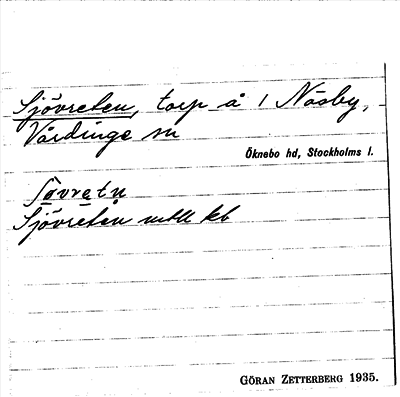 Sjövreten, torp å 1 Näsby,
Vårdinge sn
Öknebo hd, Stockholms l.
ʃøvretn̥
Sjövreten mtll kb
GÖRAN ZETTERBERG 1935.